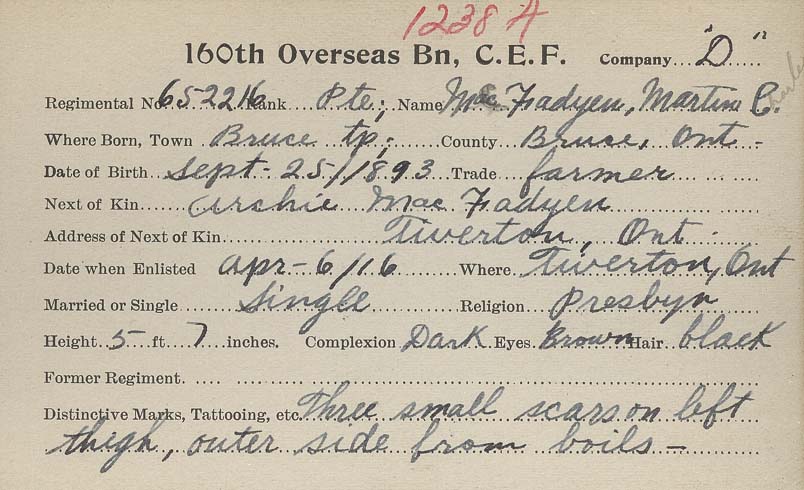 1238 A
160th Overseas Bn, C.E.F. Company "D"
Regimental No. 652216 Rank Pte; Name Mac Fadyen, Martin C.
Charles
Where Born, Town Bruce tp; County Bruce, Ont -
Date of Birth Sept - 25/1893 Trade farmer
Next of Kin Archie Mac Fadyen
Address of Next of Kin Tiverton, Ont -
Date when Enlisted Apr - 6/16 Where Tiverton, Ont
Married or Single Single Religion Presbyn
Height 5 ft 7 inches. Complexion Dark Eyes Brown Hair black
Former Regiment
Distinctive Marks, Tattooing, etc. Three small scars on left
thigh, outer side from boils -